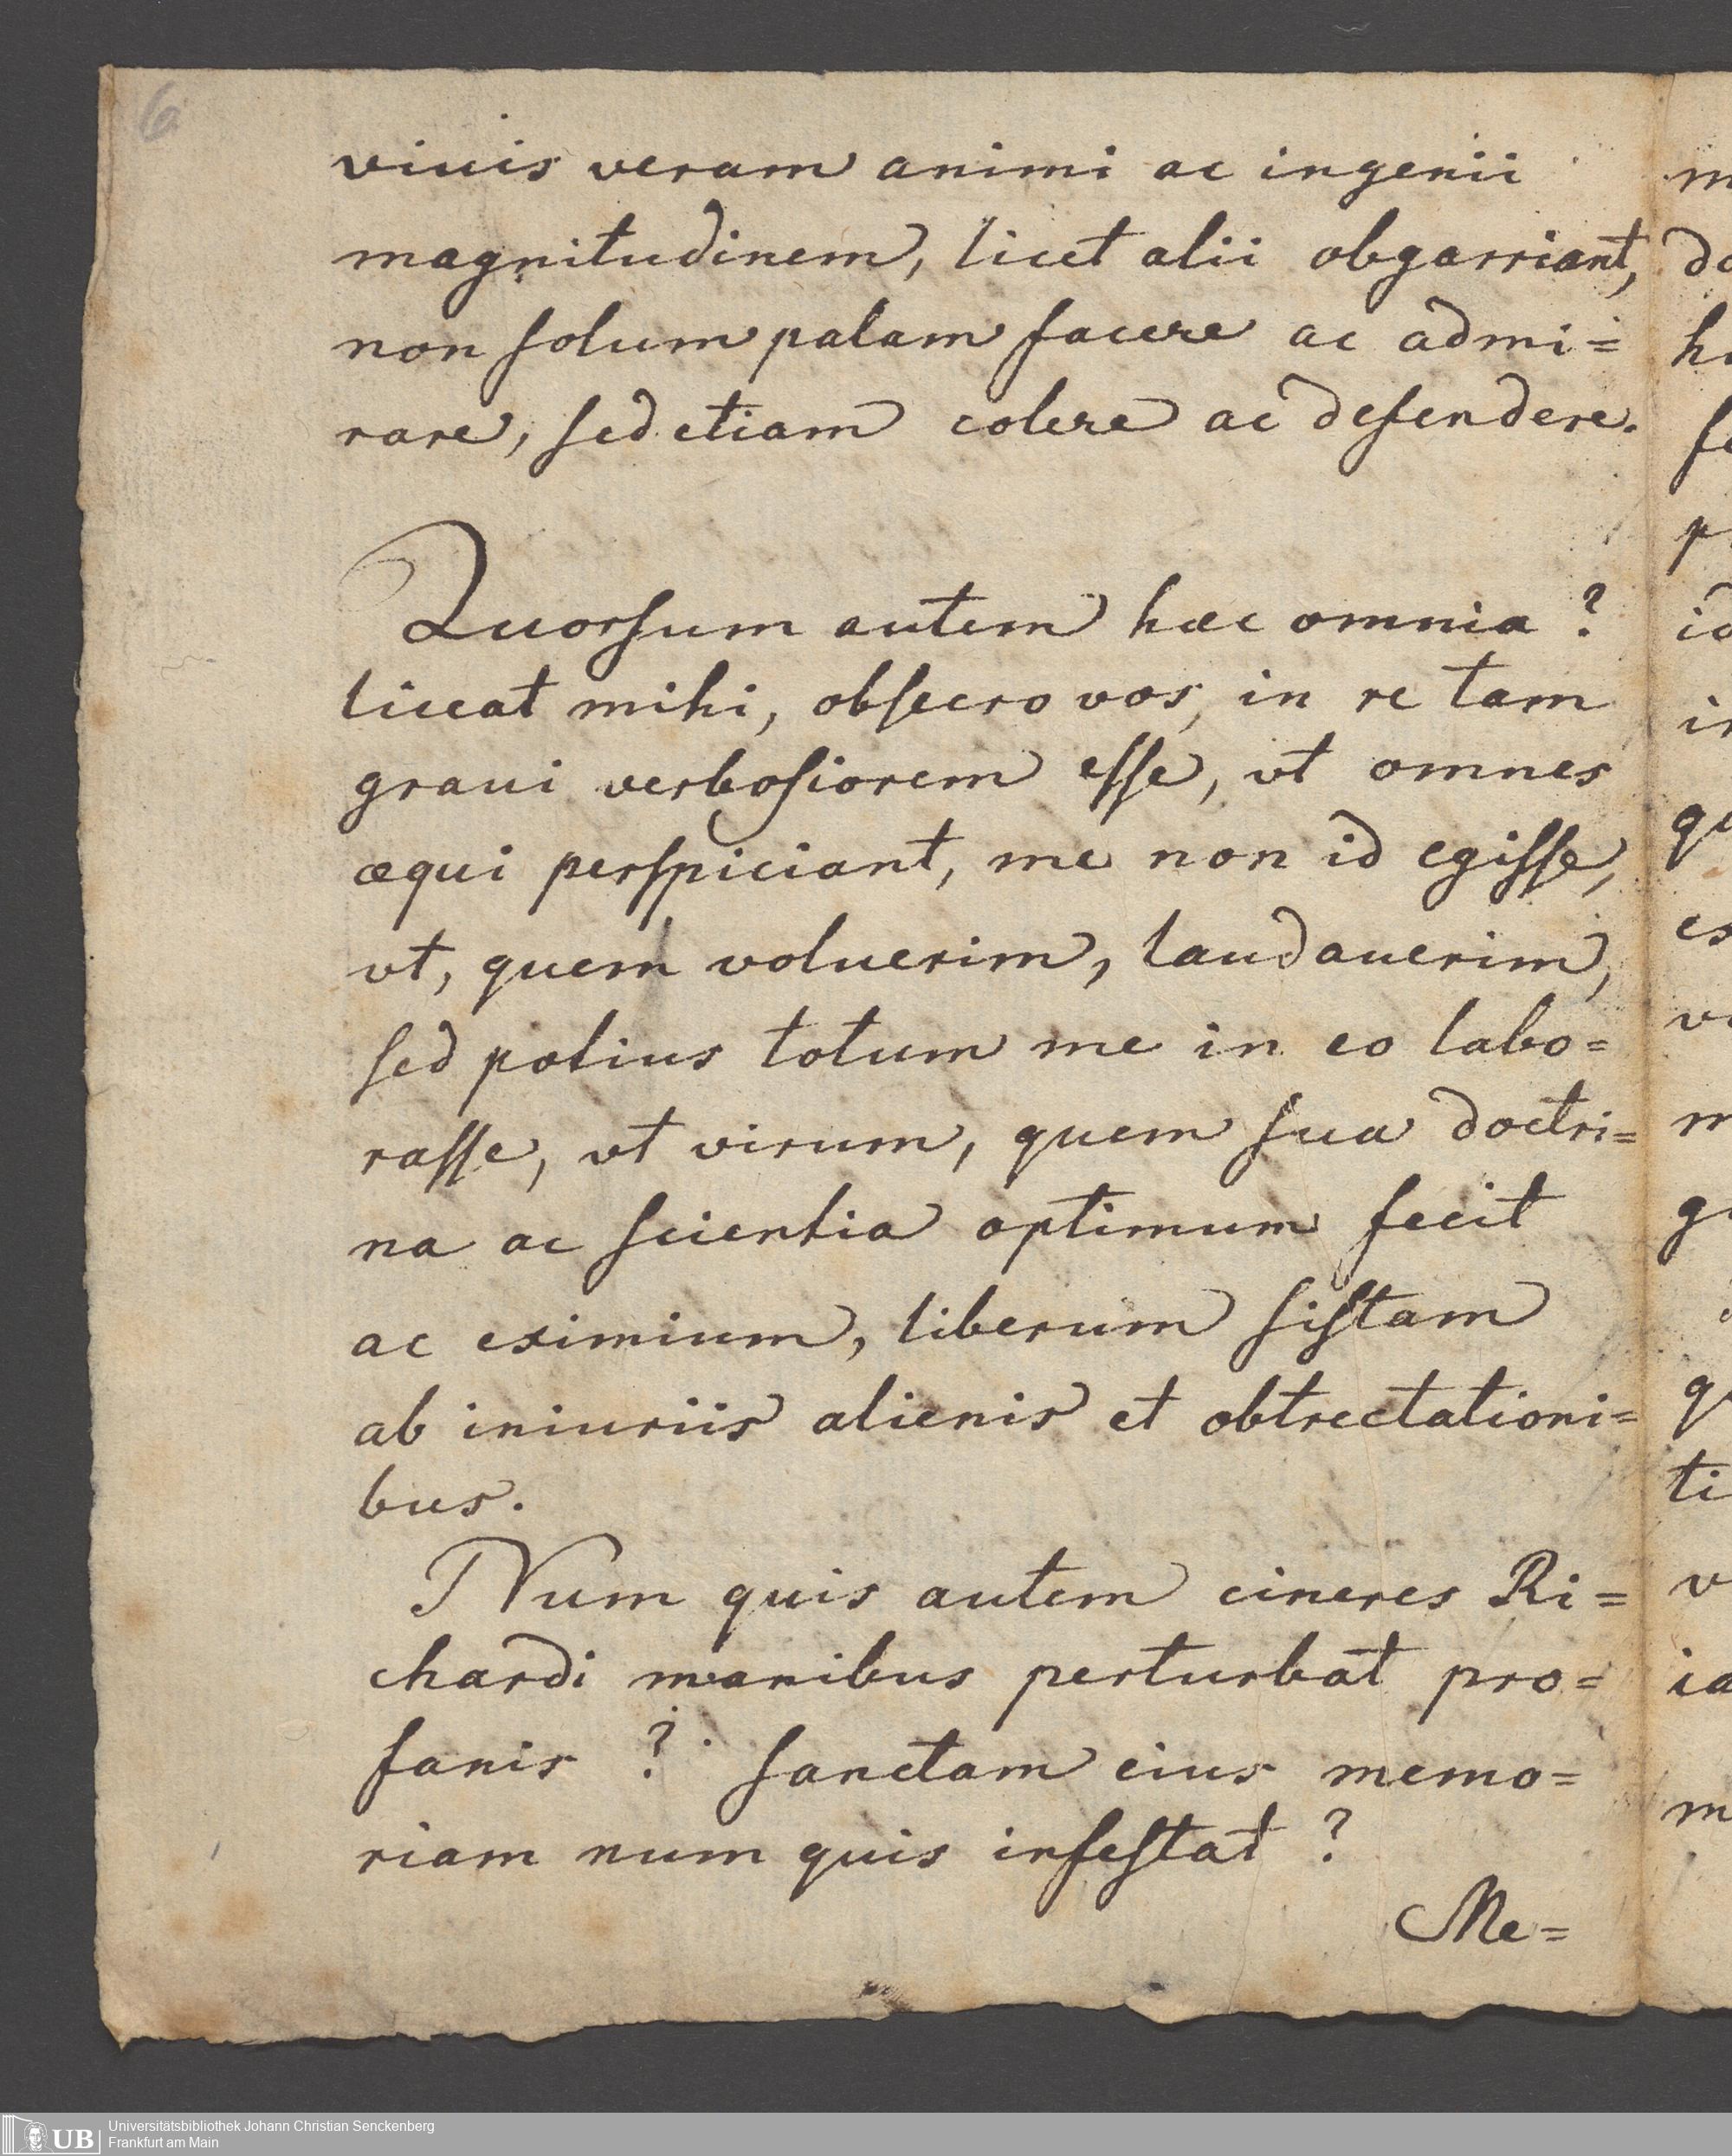 6
viuis veram animi ac ingenii
magnitudinem, licet alii obgarriant,
non ſolum palam facere ac admi=
rare, ſed etiam colere ac defendere.
Quorſum autem haec omnia?
liceat mihi, obſecro vos, in re tam
graui verboſiorem eſſe, vt omnes
æqui perſpiciant, me non id egiſſe,
vt, quem voluerim, laudauerim,
ſed potius totum me in eo labo=
raſſe, vt virum, quem ſua doctri=
na ac ſcientia optimum fecit
ac eximium, liberum ſiſtam
ab iniuriis alienis et obtrectationi=
bus.
Num quis autem cineres Ri=
chardi manibus perturbat pro=
fanis? ſanctam eius memo=
riam num quis infeſtat?
Me=
UB Universitätsbibliothek Johann Christian Senckenberg
Frankfurt am Main